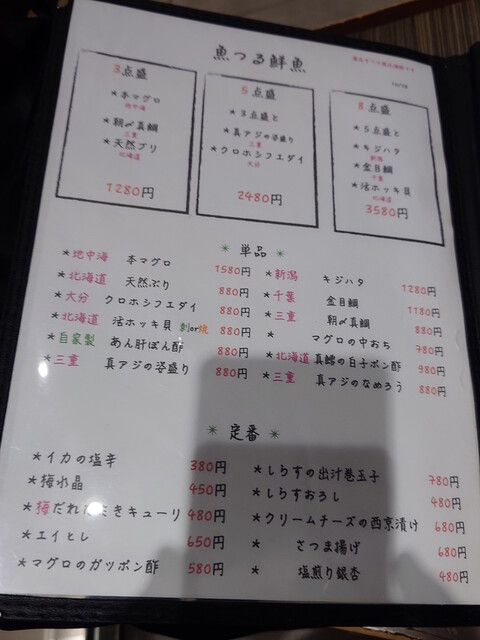 魚つる鮮魚
3点盛
*本マグロ
地中海
*朝〆真鯛
三重
*天然ブリ
北海道
1280円
5点盛
*3点盛と
*真アジの姿盛り
三重
*クロホシフエダイ
大分
2480円
8点盛
*5点盛と
*キジハタ
新潟
*金目鯛
千葉
*活ホッキ貝
北海道
3580円
* 単品 *
*地中海 本マグロ 1580円
*北海道 天然ぶり 880円
*大分 クロホシフエダイ 880円
*北海道 活ホッキ貝 刺or焼 880円
*自家製 あん肝ぽん酢 880円
*三重 真アジの姿盛り 880円
*新潟 キジハタ 1280円
*千葉 金目鯛 1180円
*三重 朝〆真鯛 880円
* マグロの中おち 780円
*北海道 真鱈の白子ポン酢 980円
*三重 真アジのなめろう 880円
* 定番 *
*イカの塩辛 380円
*梅水晶 450円
*梅だれたたきキューリ 480円
*エイヒレ 650円
*マグロのガツポン酢 580円
*しらすの出汁巻玉子 780円
*しらすおろし 480円
*クリームチーズの西京漬け 680円
* さつま揚げ 680円
* 塩煎り銀杏 480円